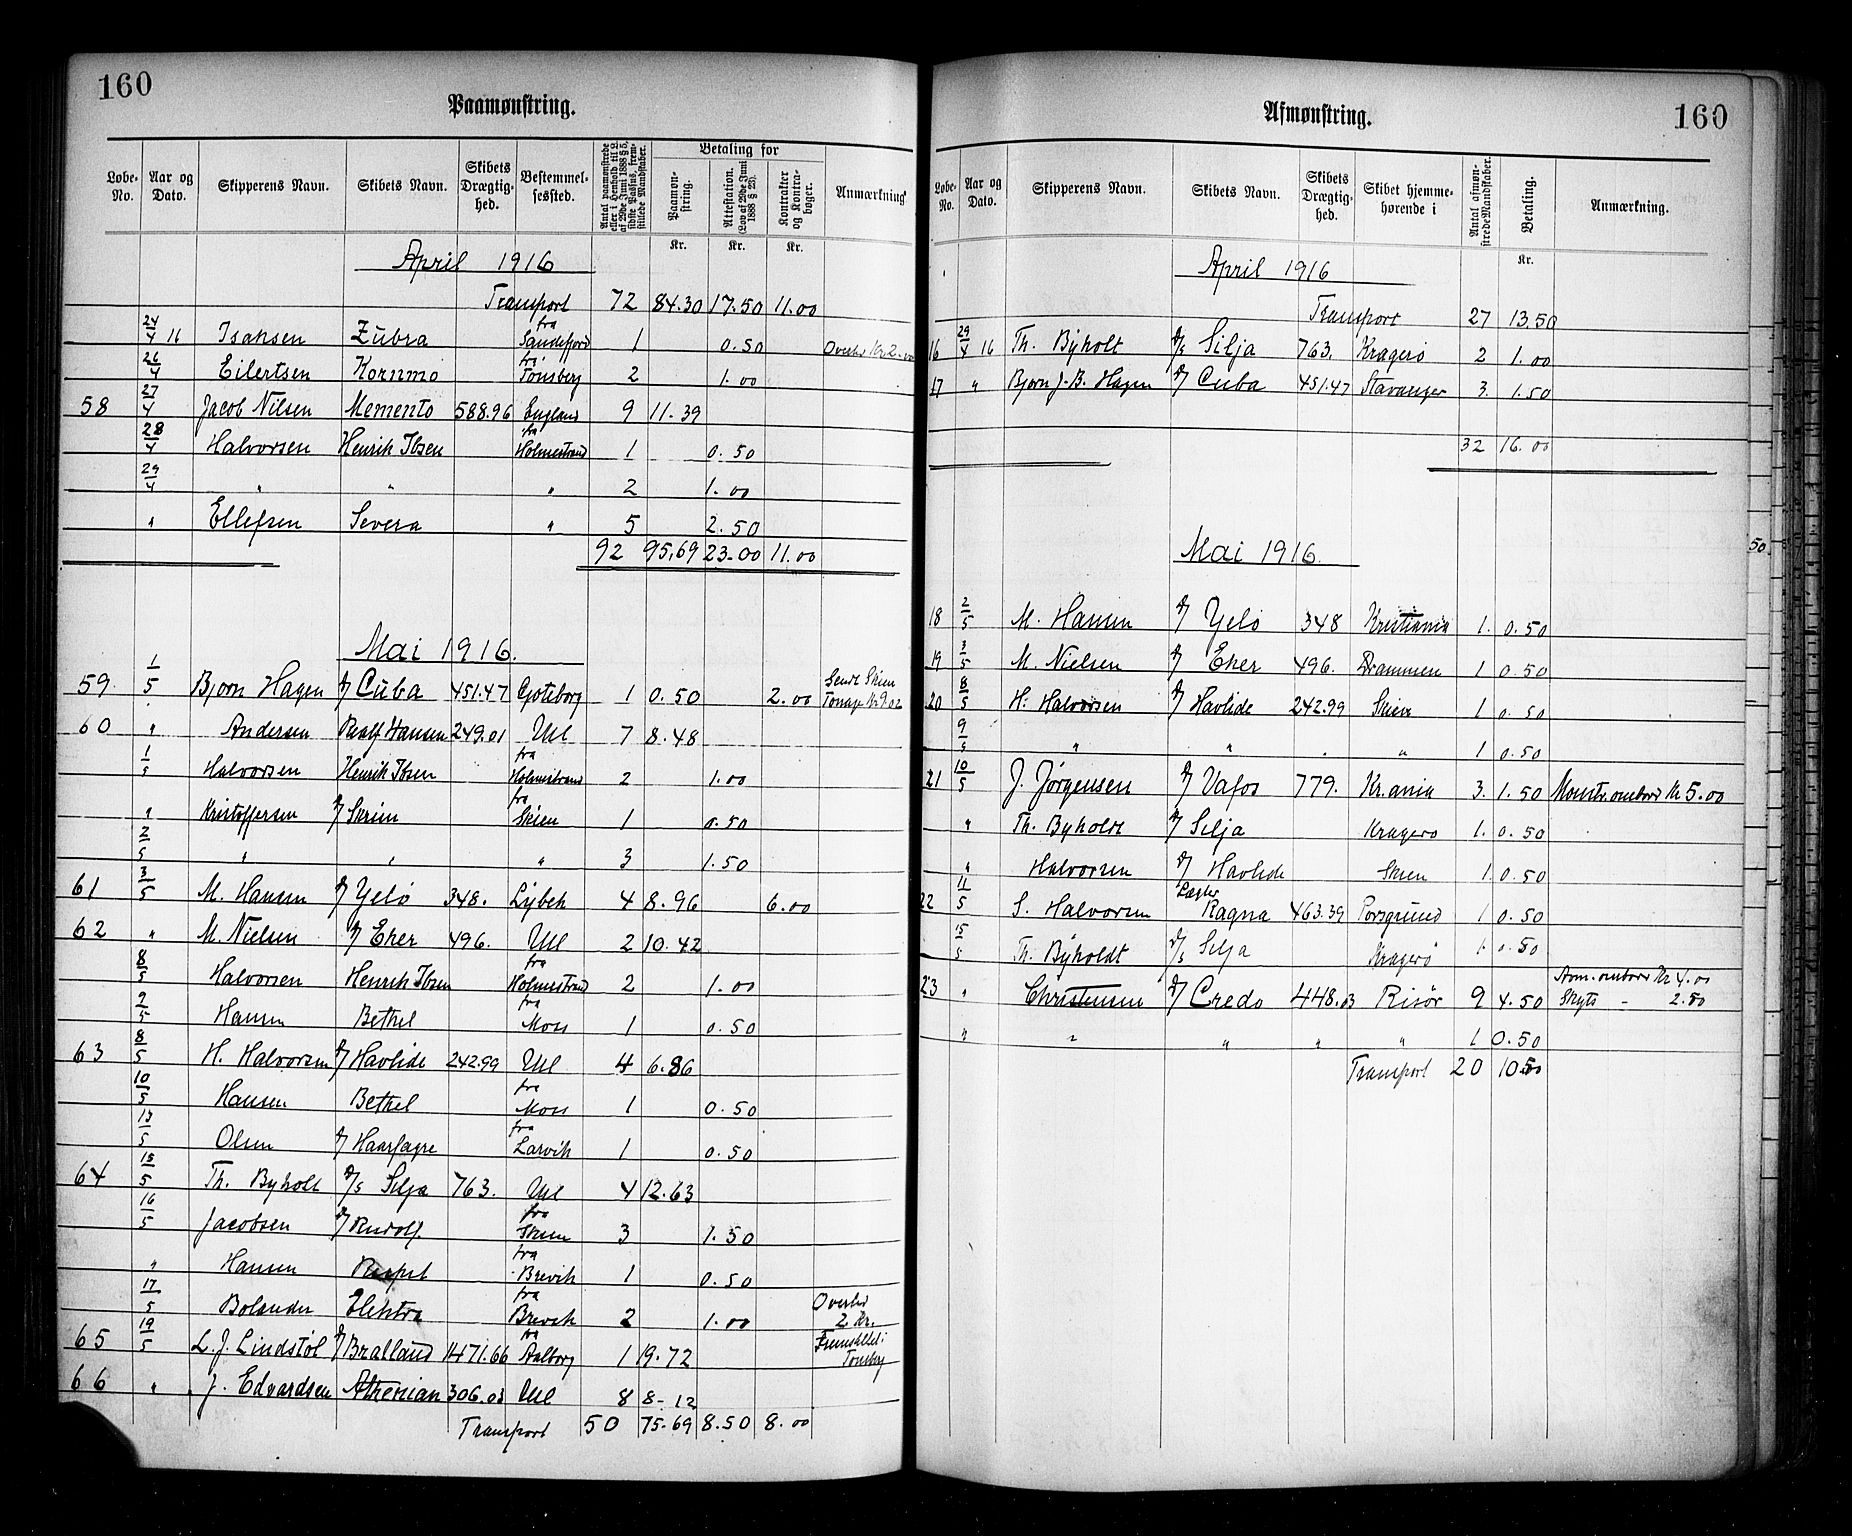 160
Paamønstring.
Løbe-No. Aar og Dato. Skipperens Navn. Skibets Navn. Skibets Drægtighed. Bestemmelsessted. Antal paamønstrede eller i Henhold til L. af 29de Juni 1888 § 5, sidste Passus, fremstillede Mandskaber. Betaling for Paamønstring. Attestation. (Lov af 29de Juni 1888 § 25). Kontrakter og Kontrabøger. Anmærkning
Kr. Kr. Kr.
April 1916
Transport 72 84.30 17.50 11.00
24/4 16 Isaksen Zubra fra Sandefjord 1 0.50 Overtid Kr 2.00
26/4 Eilertsen Kornmo fra Tønsberg 2 1.00
58 27/4 Jacob Nilsen Memento 588.96 England 9 11.39
28/4 Halvorsen Henrik Ibsen fra Holmestrand 1 0.50
29/4 " " " 2 1.00
" Ellefsen Severa " 5 2.50
92 95,69 23.00 11.00
Mai 1916.
59. 1/5 Bjorn Hagen Cuba 451.47 Goteborg 1 0.50 2.00 Sendt Skien
60 " Andersen Rolf Hansen 249.01 Uel 7 8.48
1/5 Halvorsen Henrik Ibsen fra Holmestrand 2 1.00
" Kristoffersen Skrim fra Skien 1 0.50
2/5 " " " 3 1.50
61 3/5 M. Hansen Yelø 348. Lybek 4 8.96 6.00
62 " M. Nielsen Eker 496. Uel 2 10.42
8/5 Halvorsen Henrik Ibsen fra Holmestrand 2 1.00
9/5 Hansen Bethel fra Moss 1 0.50
63 8/5 H. Halvorsen Havlide 242.99 Uel 4 6.86
10/5 Hansen Bethel fra Moss 1 0.50
13/5 Olsen Haarfagre fra Larvik 1 0.50
64 15/5 Th. Byholt Silja 763. Uel 4 12.63
16/5 Jacobsen Rudolf. fra Skien 3 1.50
" Hansen fra Brevik 1 0.50
17/5 Bolander Elektra fra Brevik 2 1.00 Overtid 2 Kr.
65 19/5 L. J. Lindstøl Bralland 1471.66 fra Aalborg 1 19.72 Fremstillet i Tønsberg
66 " J. Edvardsen Athenian 306.03 Uel 8 8-12
Transport 50 75.69 8.50 8.00
Afmønstring.
160
Løbe-No. Aar og Dato. Skipperens Navn. Skibets Navn. Skibets Drægtighed. Skibet hjemmehørende i Antal afmønstrede Mandskaber. Betaling. Anmærkning.
Kr.
April 1916
Transport 27 13.50
16 29/4 16 Th. Byholt Silja 763. Kragerø 2 1.00
17 " Bjorn J. B. Hagen Cuba 451.47 Stavanger 3. 1.50
32 16.00
Mai 1916.
50
18 2/5 M. Hansen Yelø 348 Kristiania 1. 0.50
19 3/5 M. Nielsen Eker 496. Drammen 1 0.50
20 8/5 H. Halvorsen Havlide 242.99 Skien 1 0.50
9/5 " " " " 1 0.50
21 10/5 J. Jørgensen Vafos 779. Kr.ania 3. 1.50 Mønstr. ombord Kr 5.00
" Th. Byholdt Silja Kragerø 1. 0.50
" Halvorsen Havlide Skien 1 0.50
22 11/5 S. Halvorsen Lægter Ragna 463.39 Porsgrund 1 0.50
15/5 Th. Byholdt Silja Kragerø 1 0.50
23 " Christensen Credo 448.03 Risør 9 4.50 Afm. ombord Kr 4.00 Skyts - 2.50
" " " " " 1 0.50
Transport 20 10.50